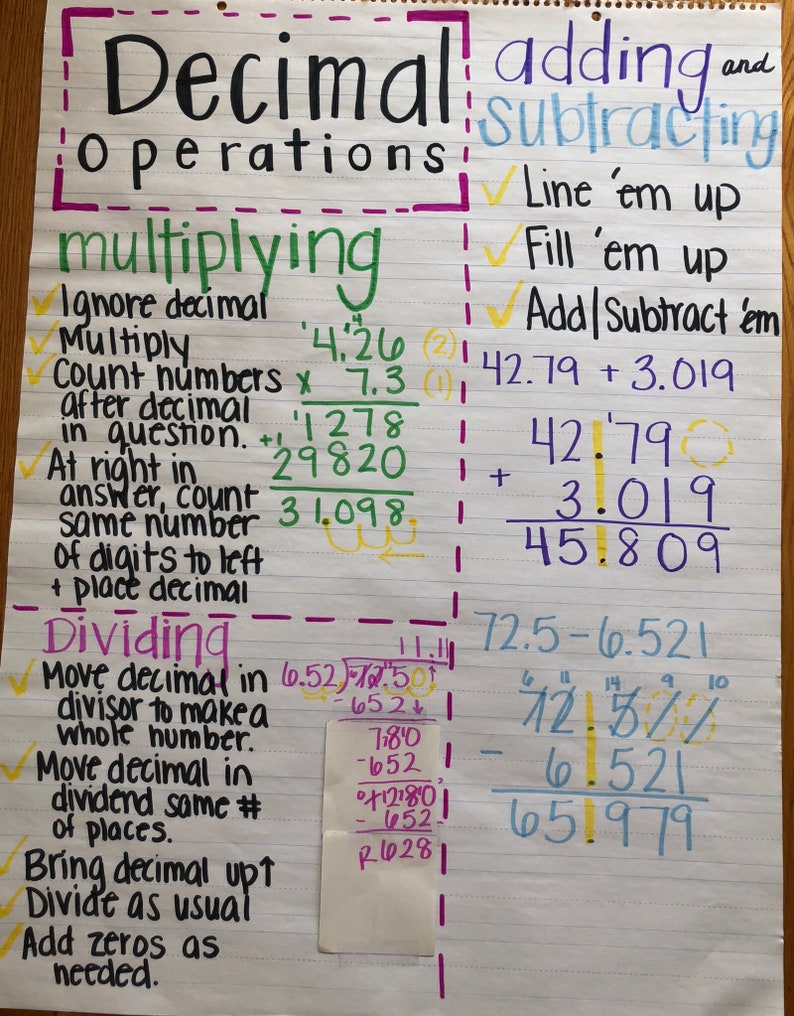 Decimal
operations
multiplying
Ignore decimal
Multiply
Count numbers
after decimal
in question.
At right in
answer, count
same number
of digits to left
+ place decimal
4.26 (2)
x 7.3 (1)
1278
+
29820
31.098
Dividing
Move decimal in
divisor to make a
whole number.
Move decimal in
dividend same #
of places.
Bring decimal up↑
Divide as usual
Add zeros as
needed.
11.11
6.52)72.50
-652
780
-652
1280
- 652
R628
adding and
subtracting
Line 'em up
Fill 'em up
Add/Subtract 'em
42.79 + 3.019
42.79
+ 3.019
45.809
72.5-6.521
6 11 14 9 10
72.5
- 6.521
65.979